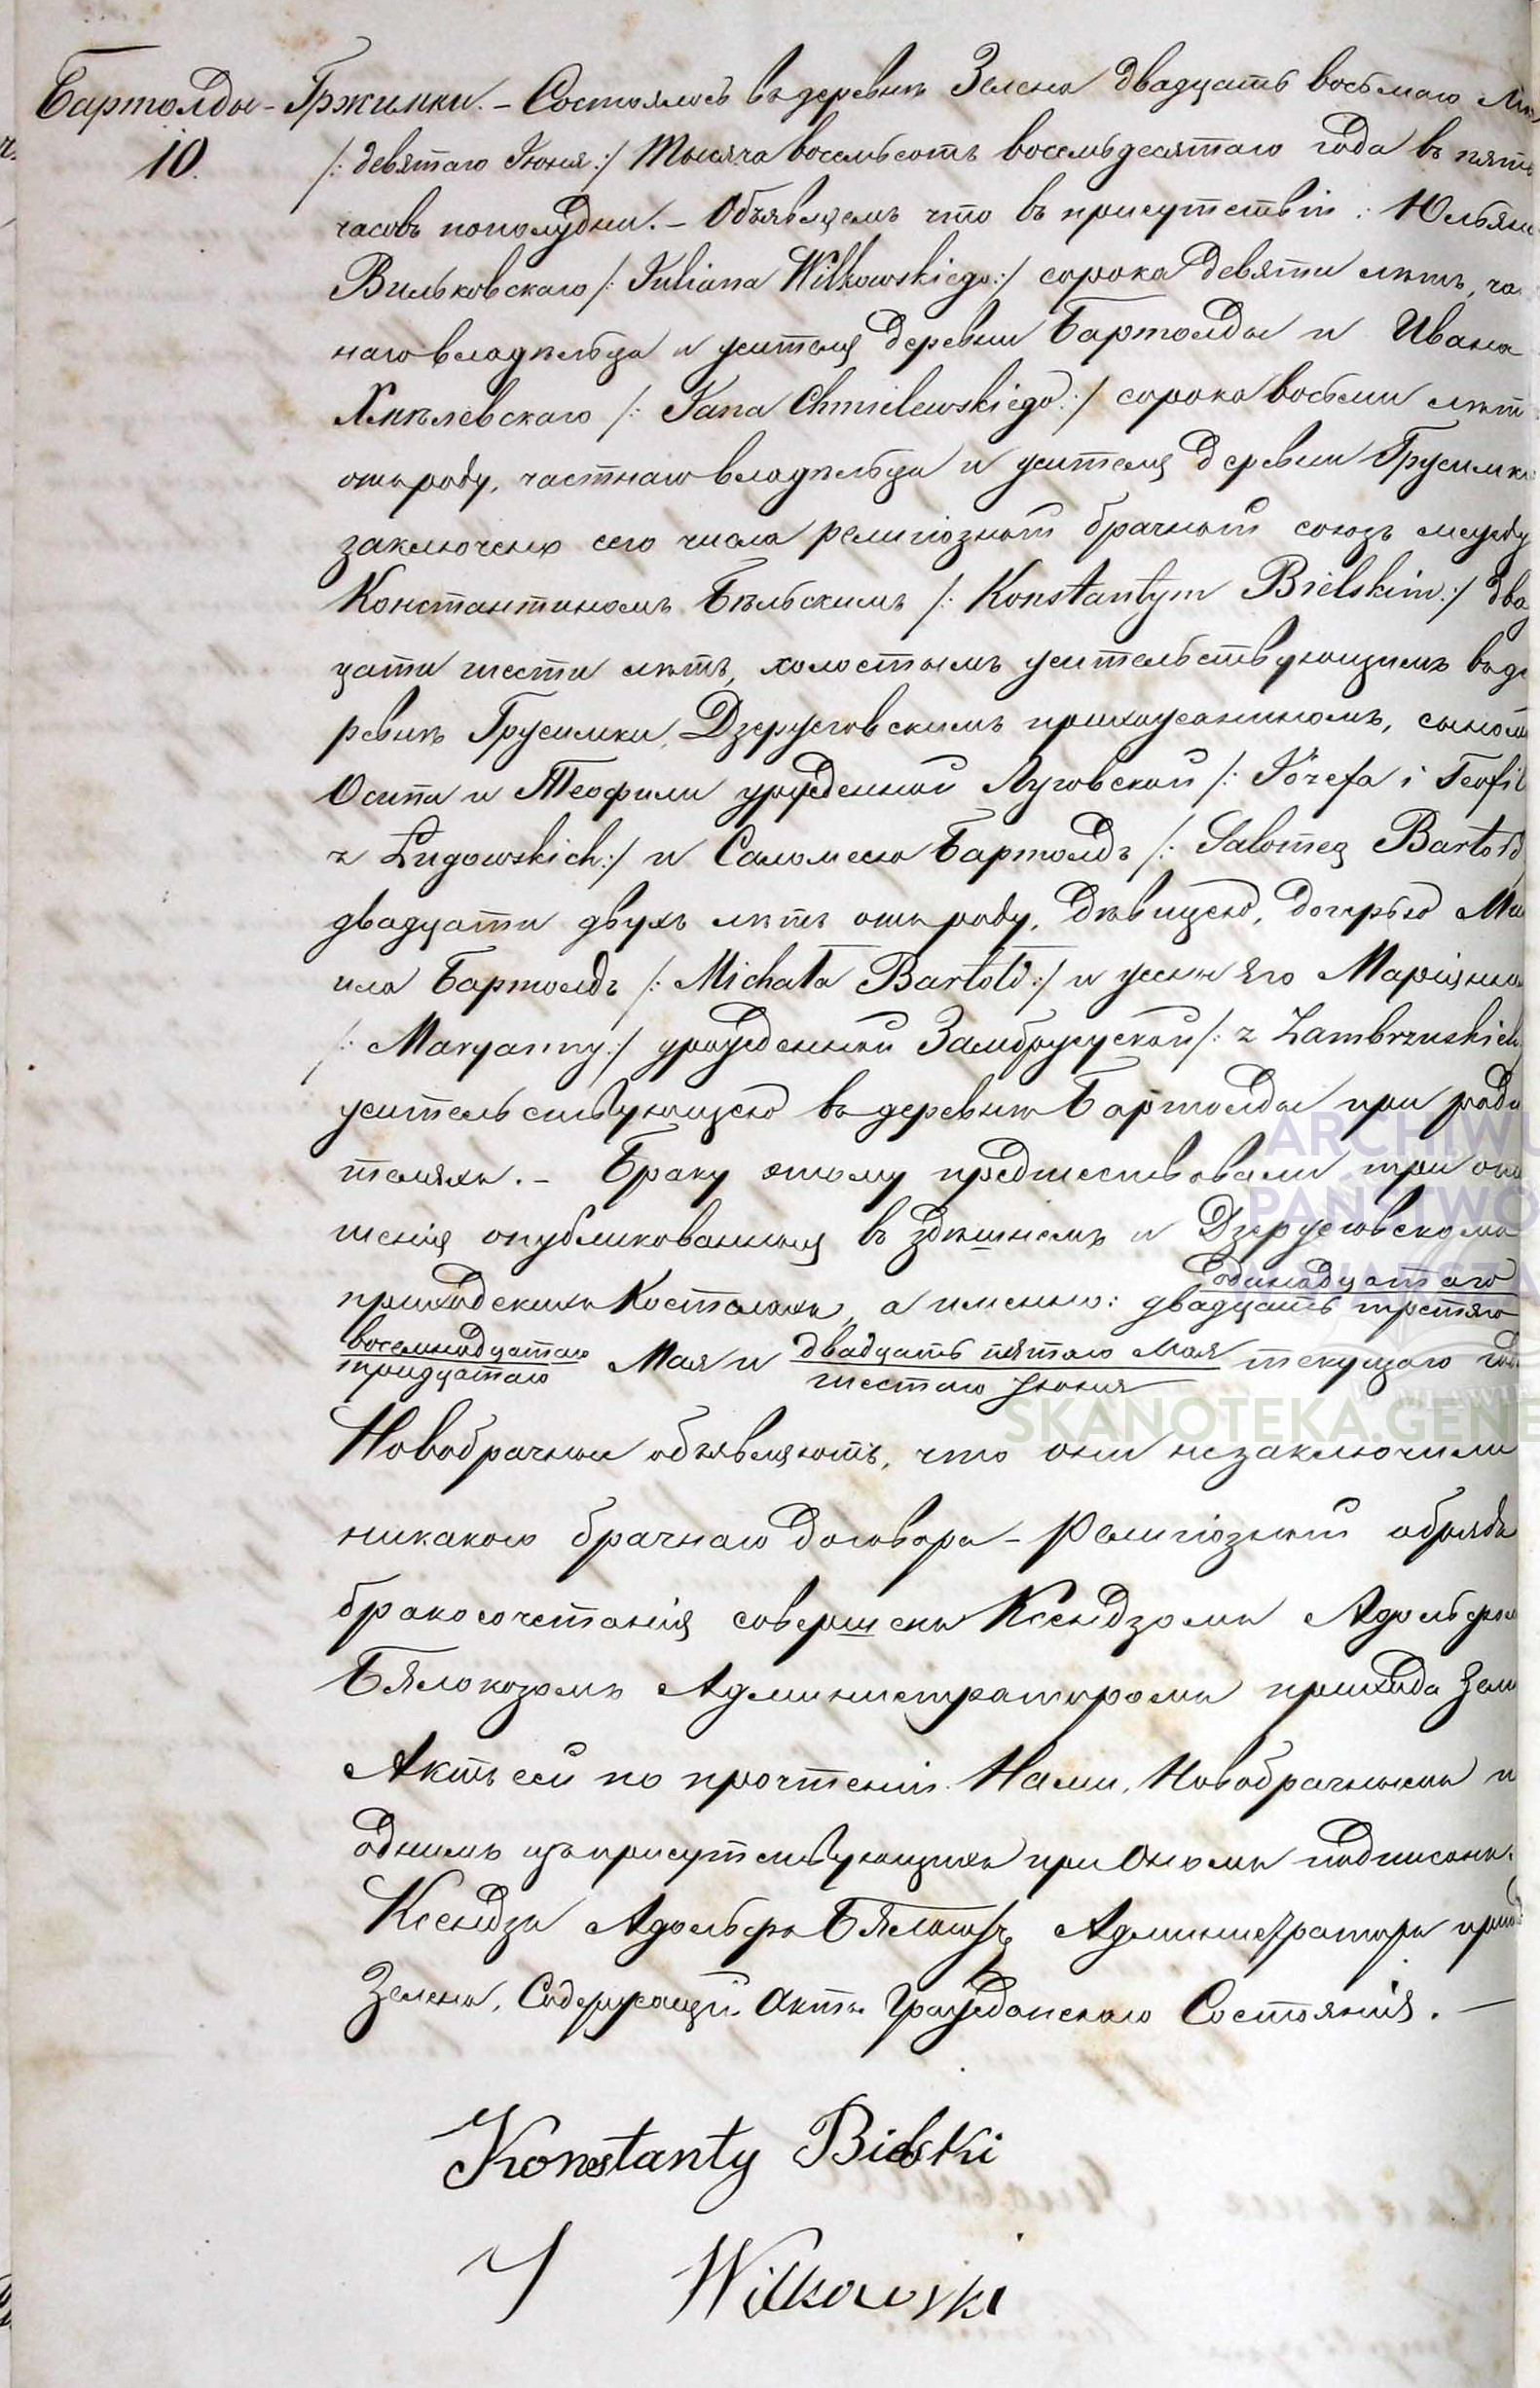 Бартолды - Гржимки. - Состоялось въ деревнѣ Зелена двадцать восьмаго
10. /: девятаго Июня :/ Тысяча восемьсотъ восемьдесятаго года въ пять
часовъ пополудни. - Объявляемъ что въ присутствіи: Юльяна
Вильковскаго /: Juliana Wilkowskiego :/ сорока девяти лѣтъ, ча
наго владѣльца и жителя деревни Бартолды и Ивана
Хмѣлевскаго /: Jana Chmielewskiego :/ сорока восьми лѣтъ
отъ роду, частнаго владѣльца и жителя деревни Гржимки
заключенъ сего числа религіозный брачный союзъ между
Константиномъ Бѣльскимъ /: Konstantym Bielskim :/ два
цати шести лѣтъ, холостымъ жительствующимъ въ де
ревнѣ Гржимки, Дзержговскимъ прихожаниномъ, сыномъ
Осипа и Теофили урожденной Луговской /: Józefa i Teofil
z Ługowskich :/ и Саломеею Бартолдъ /: Salomeą Bartołd
двадцати двухъ лѣтъ отъ роду, дѣвицею, дочерью Ми
ила Бартолдъ /: Michała Bartołd :/ и жены Его Маріянны
/: Maryanny :/ урожденной Замбржуской /: z Zambrzuskich
жительствующею въ деревнѣ Бартолды при роди
теляхъ. - Браку этому предшествовали три огла
шенія опубликованныя въ здѣшнемъ и Дзержговскомъ
приходскихъ Костелахъ, а именно: одинадцатаго двадцать третяго
восемнадцатаго тридцатаго Мая и двадцать пятаго Мая шестаго Июня текущаго года
Новобрачныи объявляютъ, что они незаключили
никакого брачнаго договора - Религіозный обрядъ
бракосочетанія совершенъ Ксендзомъ Адольфомъ
Бялокозомъ Администраторомъ прихода Зел
Актъ сей по прочтеніи Нами, Новобрачными и
однимъ изъ присутствующихъ при Ономъ подписанъ.
Ксендзъ Адольфъ Администраторъ прихода
Зелена, Содержащій Акты Гражданскаго Состоянія. -
Konstanty Bielski
J Wilkowski
ARCHIWU
PAŃSTWO
W WARSZA
SKANOTEKA.GENE